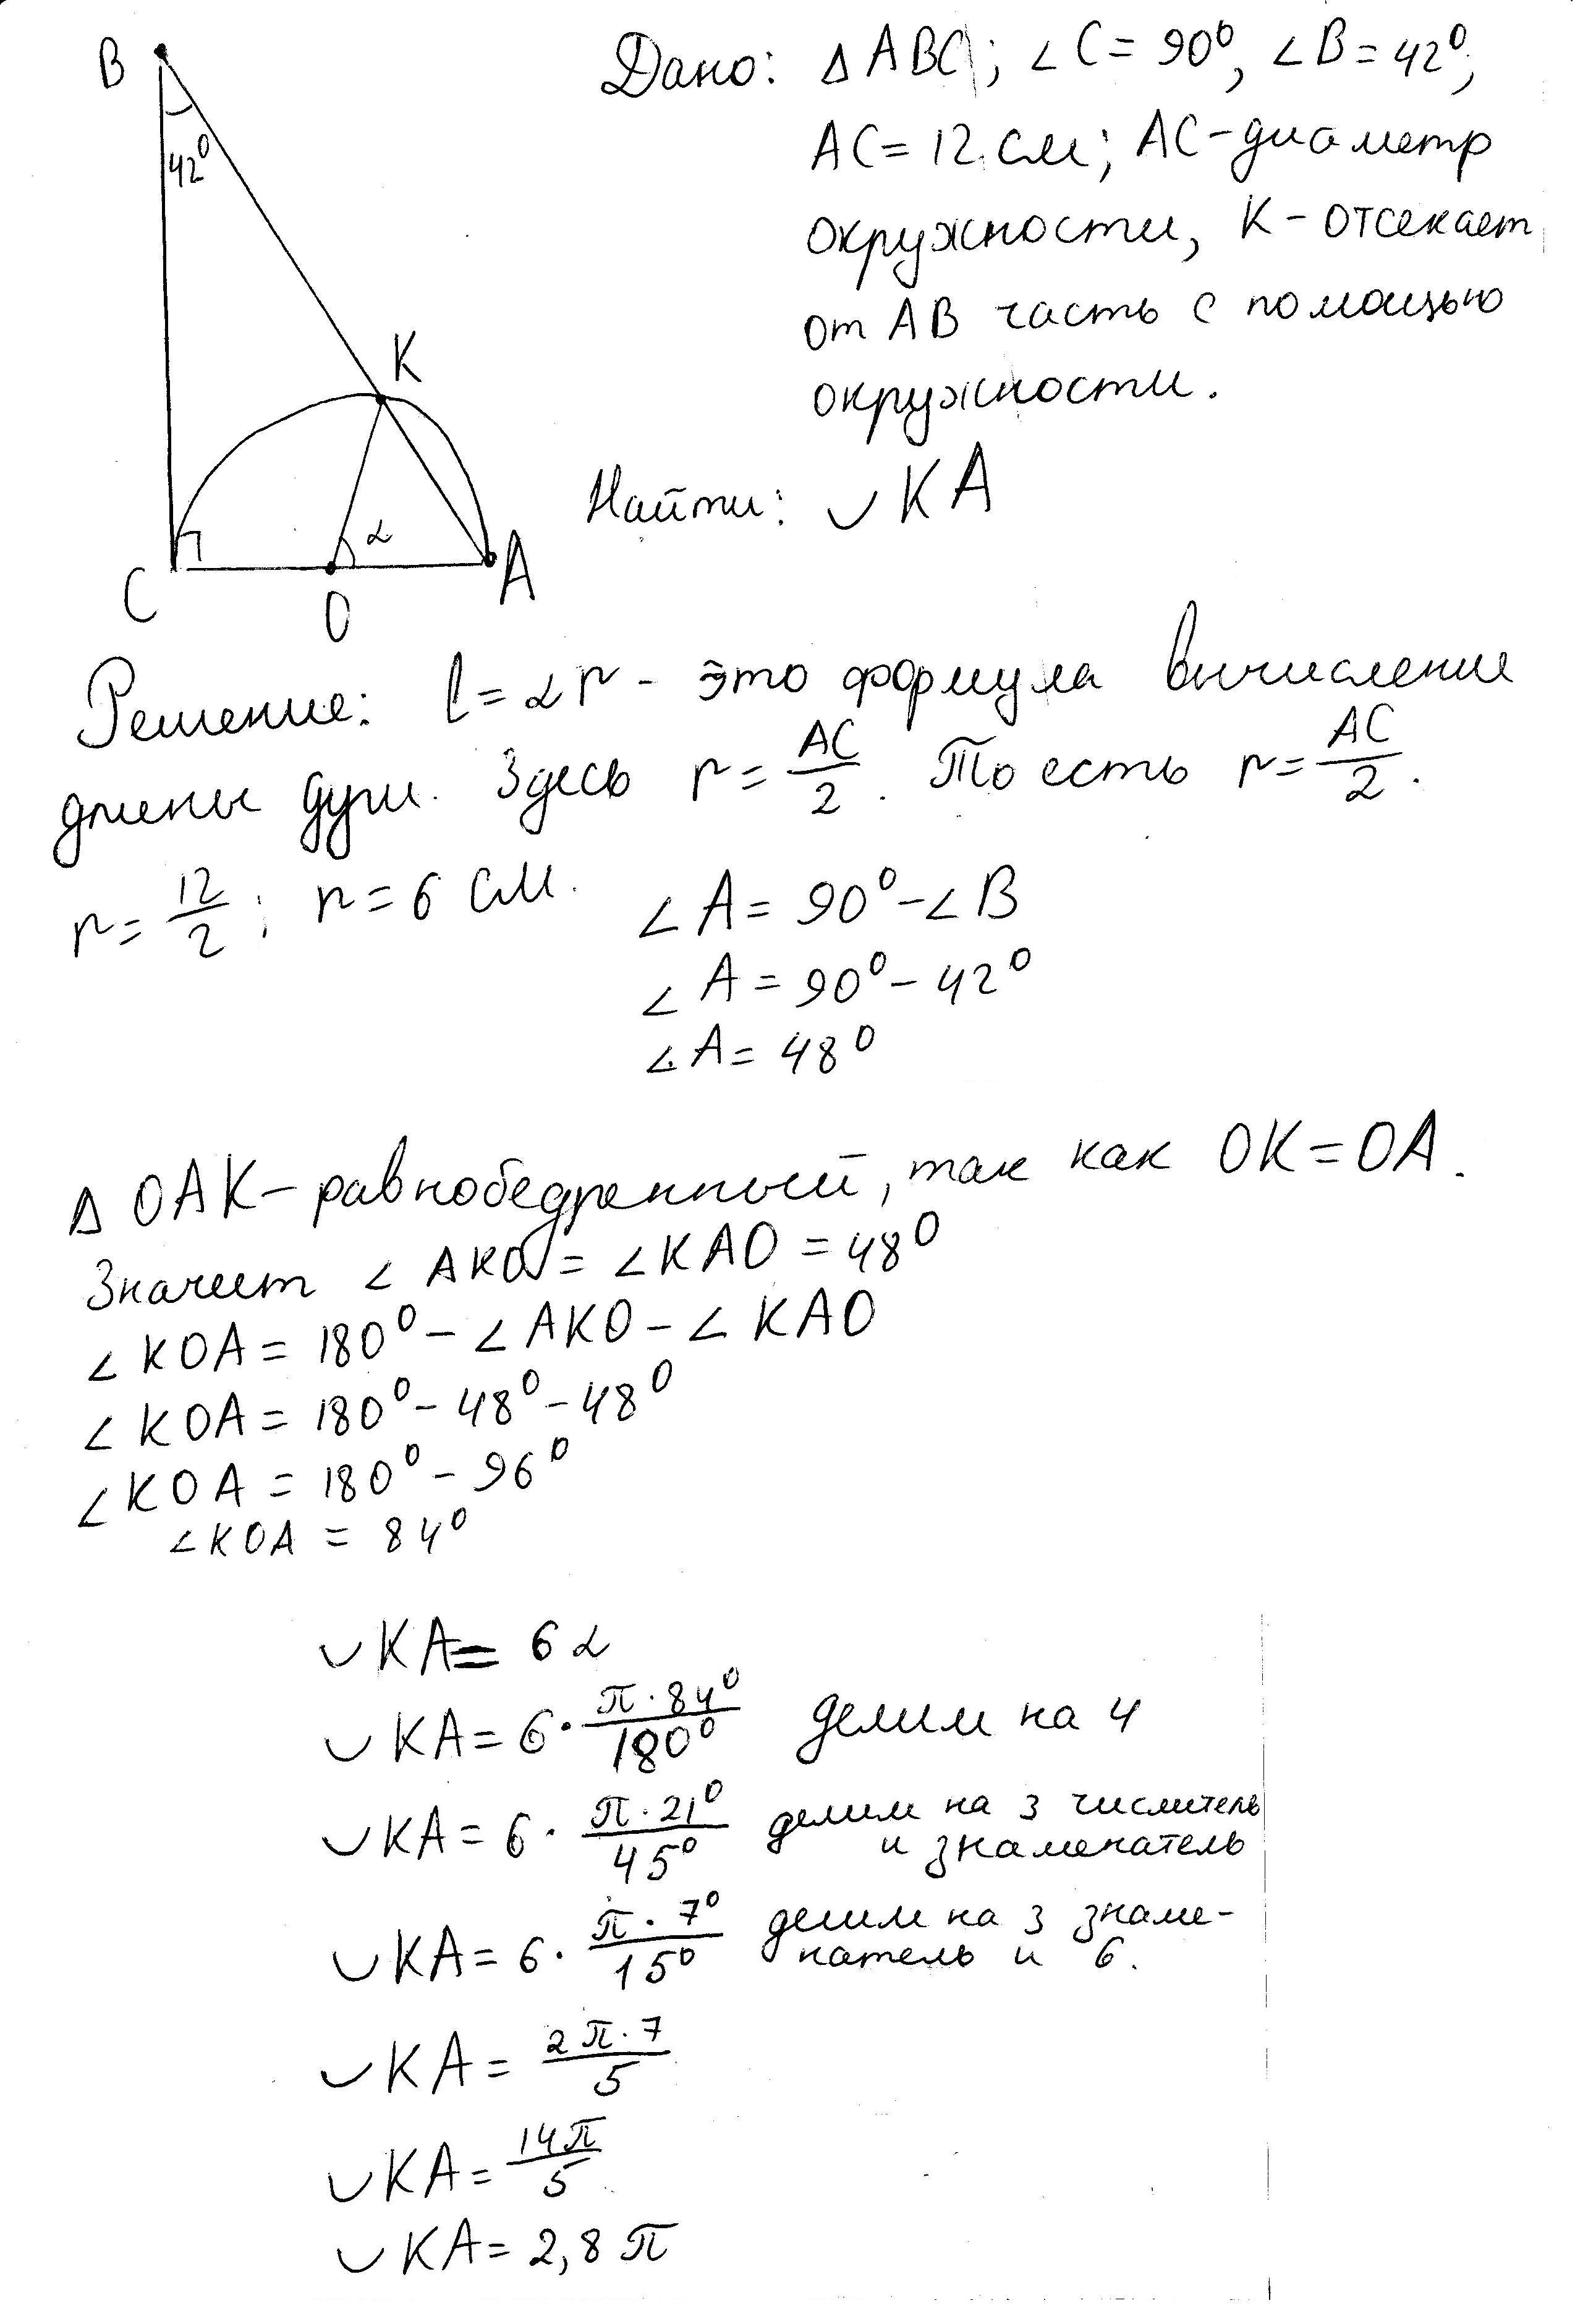 B
42⁰
K
α
C
O
A
Дано: Δ ABC; ∠C = 90⁰, ∠B = 42⁰;
AC = 12 см; AC - диаметр
окружности, K - отсекает
от AB часть с помощью
окружности.
Найти: ◡ KA
Решение: l = αr - это формула вычисление
длины дуги. Здесь r = AC/2. То есть r = AC/2.
r = 12/2; r = 6 см.
∠A = 90⁰ - ∠B
∠A = 90⁰ - 42⁰
∠A = 48⁰
Δ OAK - равнобедренный, так как OK = OA.
Значит ∠ AKO = ∠KAO = 48⁰
∠KOA = 180⁰ - ∠AKO - ∠KAO
∠KOA = 180⁰ - 48⁰ - 48⁰
∠KOA = 180⁰ - 96⁰
∠KOA = 84⁰
◡ KA = 6α
◡ KA = 6 · π · 84⁰/180⁰ делим на 4
◡ KA = 6 · π · 21⁰/45⁰ делим на 3 числитель
и знаменатель
◡ KA = 6 · π · 7⁰/15⁰ делим на 3 знаме-
натель и 6.
◡ KA = 2π · 7/5
◡ KA = 14π/5
◡ KA = 2,8 π